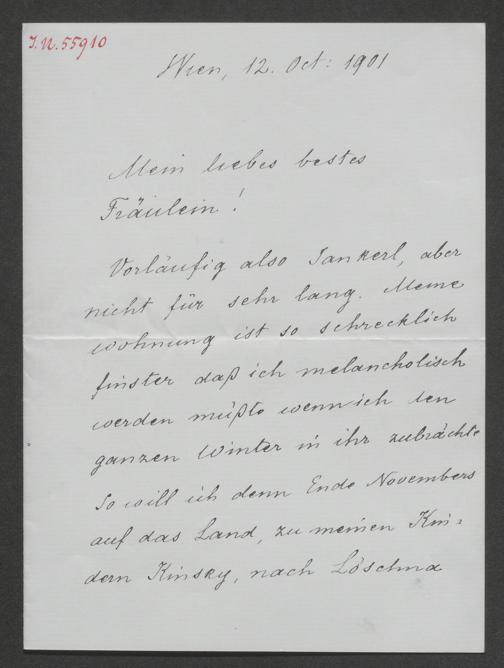 J.N. 55910
Wien, 12. Oct: 1901
Mein liebes bestes
Fräulein!
Vorläufig also Jankerl, aber
nicht für sehr lang. Meine
Wohnung ist so schrecklich
finster daß ich melancholisch
werden müßte wenn ich den
ganzen Winter in ihr zubrächte
So will ich denn Ende Novembers
auf das Land, zu meinen Kin=
dern Kinsky, nach Löschna